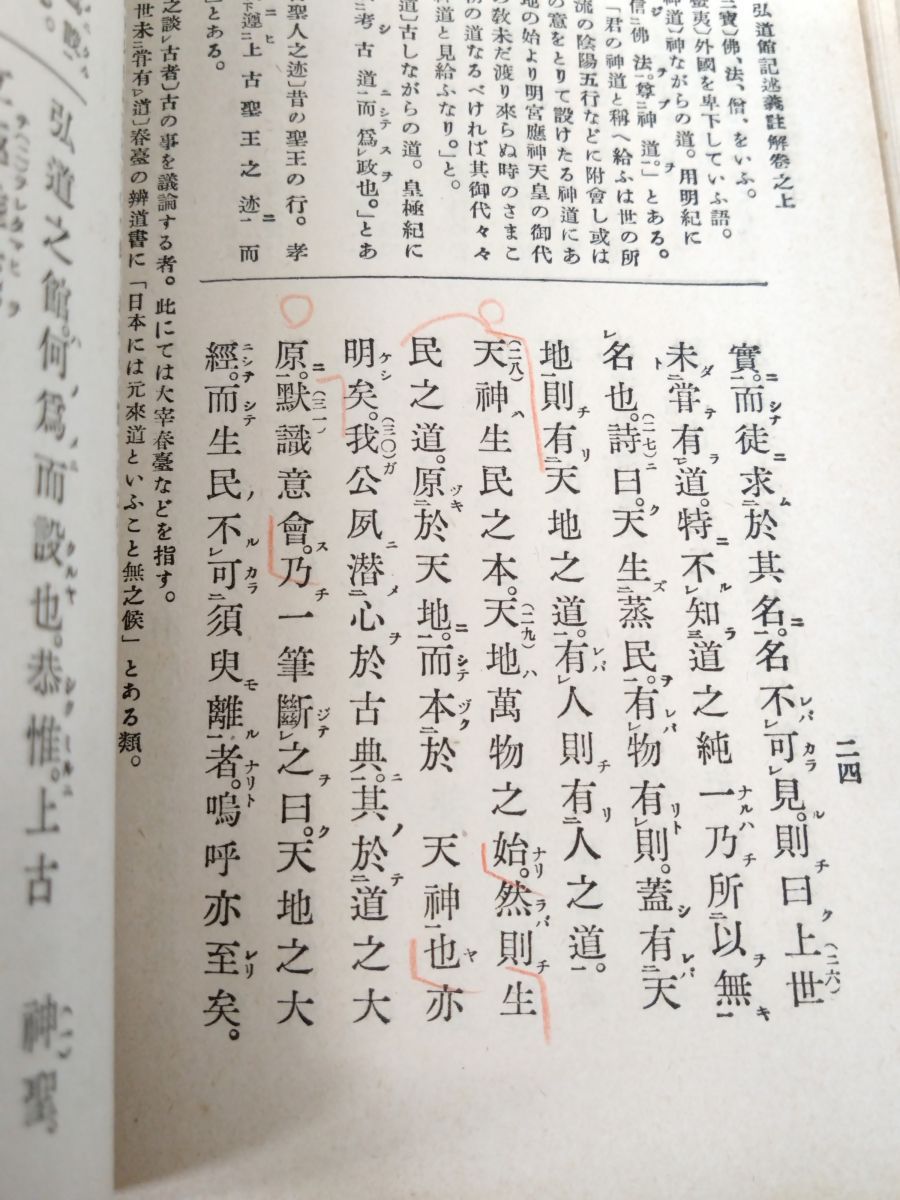 弘道館記述義註解卷之上
二四
三寶〕佛、法、僧、をいふ。
蠻夷〕外國を卑下していふ語。
神道〕神ながらの道。用明紀に
信佛法。尊神道。」とある。
「君の神道と稱へ給ふは世の所
流の陰陽五行などに附會し或は
の意をとりて設けたる神道にあ
地の始より明宮應神天皇の御代
の敎未だ渡り來らぬ時のさまこ
初の道なるべければ其御代々々
神道と見給ふなり。」と。
道〕古しながらの道。皇極紀に
考古道而爲政也。」とあ
聖人之迹〕昔の聖王の行。孝
遵上古聖王之迹而
」とある。
之談古者〕古の事を議論する者。此にては太宰春臺などを指す。
世未甞有道〕春臺の辨道書に「日本には元來道といふこと無之候」とある類。
實。而徒求於其名。名不可見。則曰上世(二六)
未甞有道。特不知道之純一乃所以無
名也。(二七)詩曰。天生蒸民。有物有則。蓋有天
地則有天地之道。有人則有人之道。
(二八)天神生民之本。(二九)天地萬物之始。然則生
民之道。原於天地。而本於 天神也亦
明矣。(三〇)我公夙潜心於古典。其於道之大
原。(三一)默識意會。乃一筆斷之曰。天地之大
經。而生民不可須臾離者。嗚呼亦至矣。
弘道之館何爲而設也。恭惟。上古 神聖